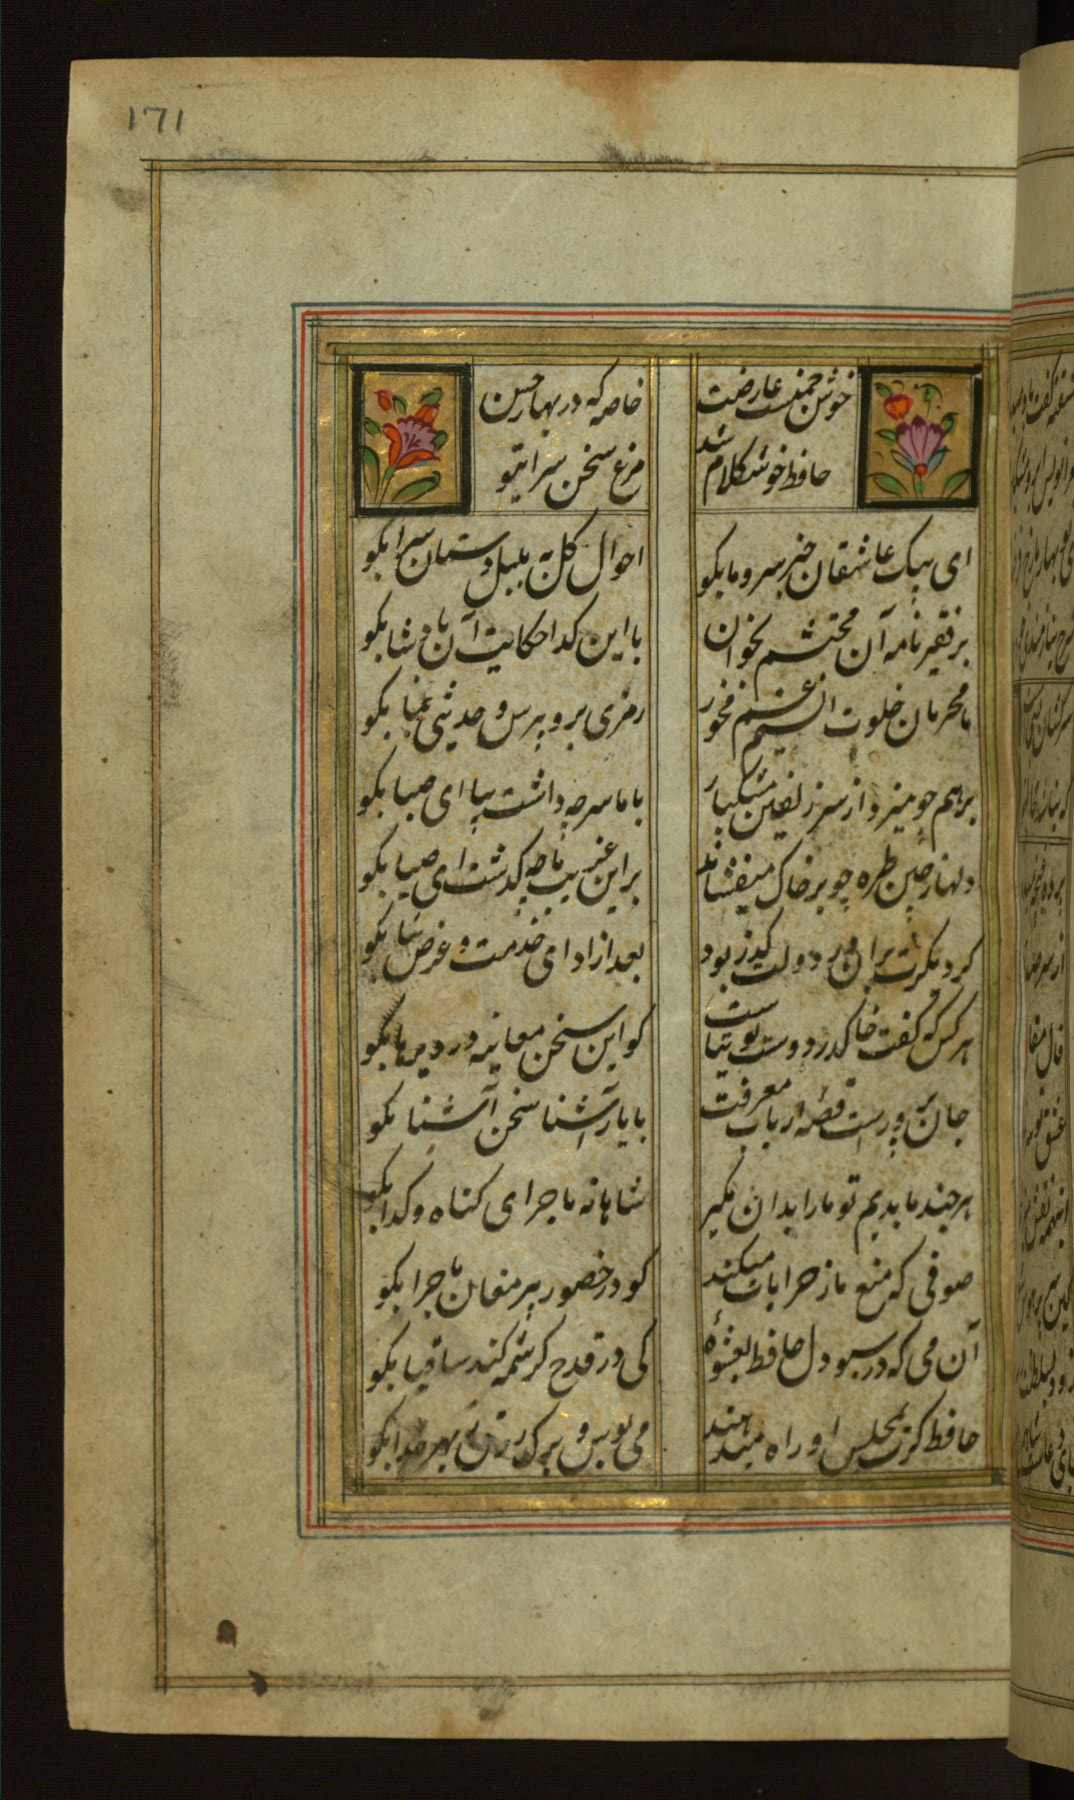 ١٦١
خوش چمنیست عارضت خاصه که در بهار حسن
حافظ خوشکلام شد مرغ سخن سرای تو
ای پیک عاشقان خبر سرو ما بکو احوال کل به بلبل دستان سرا بکو
بر فقیر نامه آن محتشم بخوان با این کدا حکایت آن پادشا بکو
ما محرمان خلوت انسیم غم مخور رمزی برو بپرس و حدیثی بیا بکو
برهم چو میزد از سر زلفین مشکبار با ما سر چه داشت بیا ای صبا بکو
دلها ز چین طره چو بر خاک میفشاند بر این غریب ما چه کذشت ای صبا بکو
کر دیکرت بران در دولت کذر بود بعد از ادای خدمت و عرض دعا بکو
هر کس که کفت خاک در دوست توتیاست کو این سخن معاینه در دیده ما بکو
جان پرورست قصه ارباب معرفت با یار آشنا سخن آشنا بکو
هر چند ما بدیم تو ما را بدان مکیر شاهانه ماجرای کناه و کدا بکو
صوفی که منع ما ز خرابات میکند کو در حضور پیر مغان ماجرا بکو
آن می که در سبو دل حافظ بعشوه کی در قدح کرشمه کند ساقیا بکو
حافظ کرت بمجلس او راه میدهند می نوش و ترک زرق بهر خدا بکو